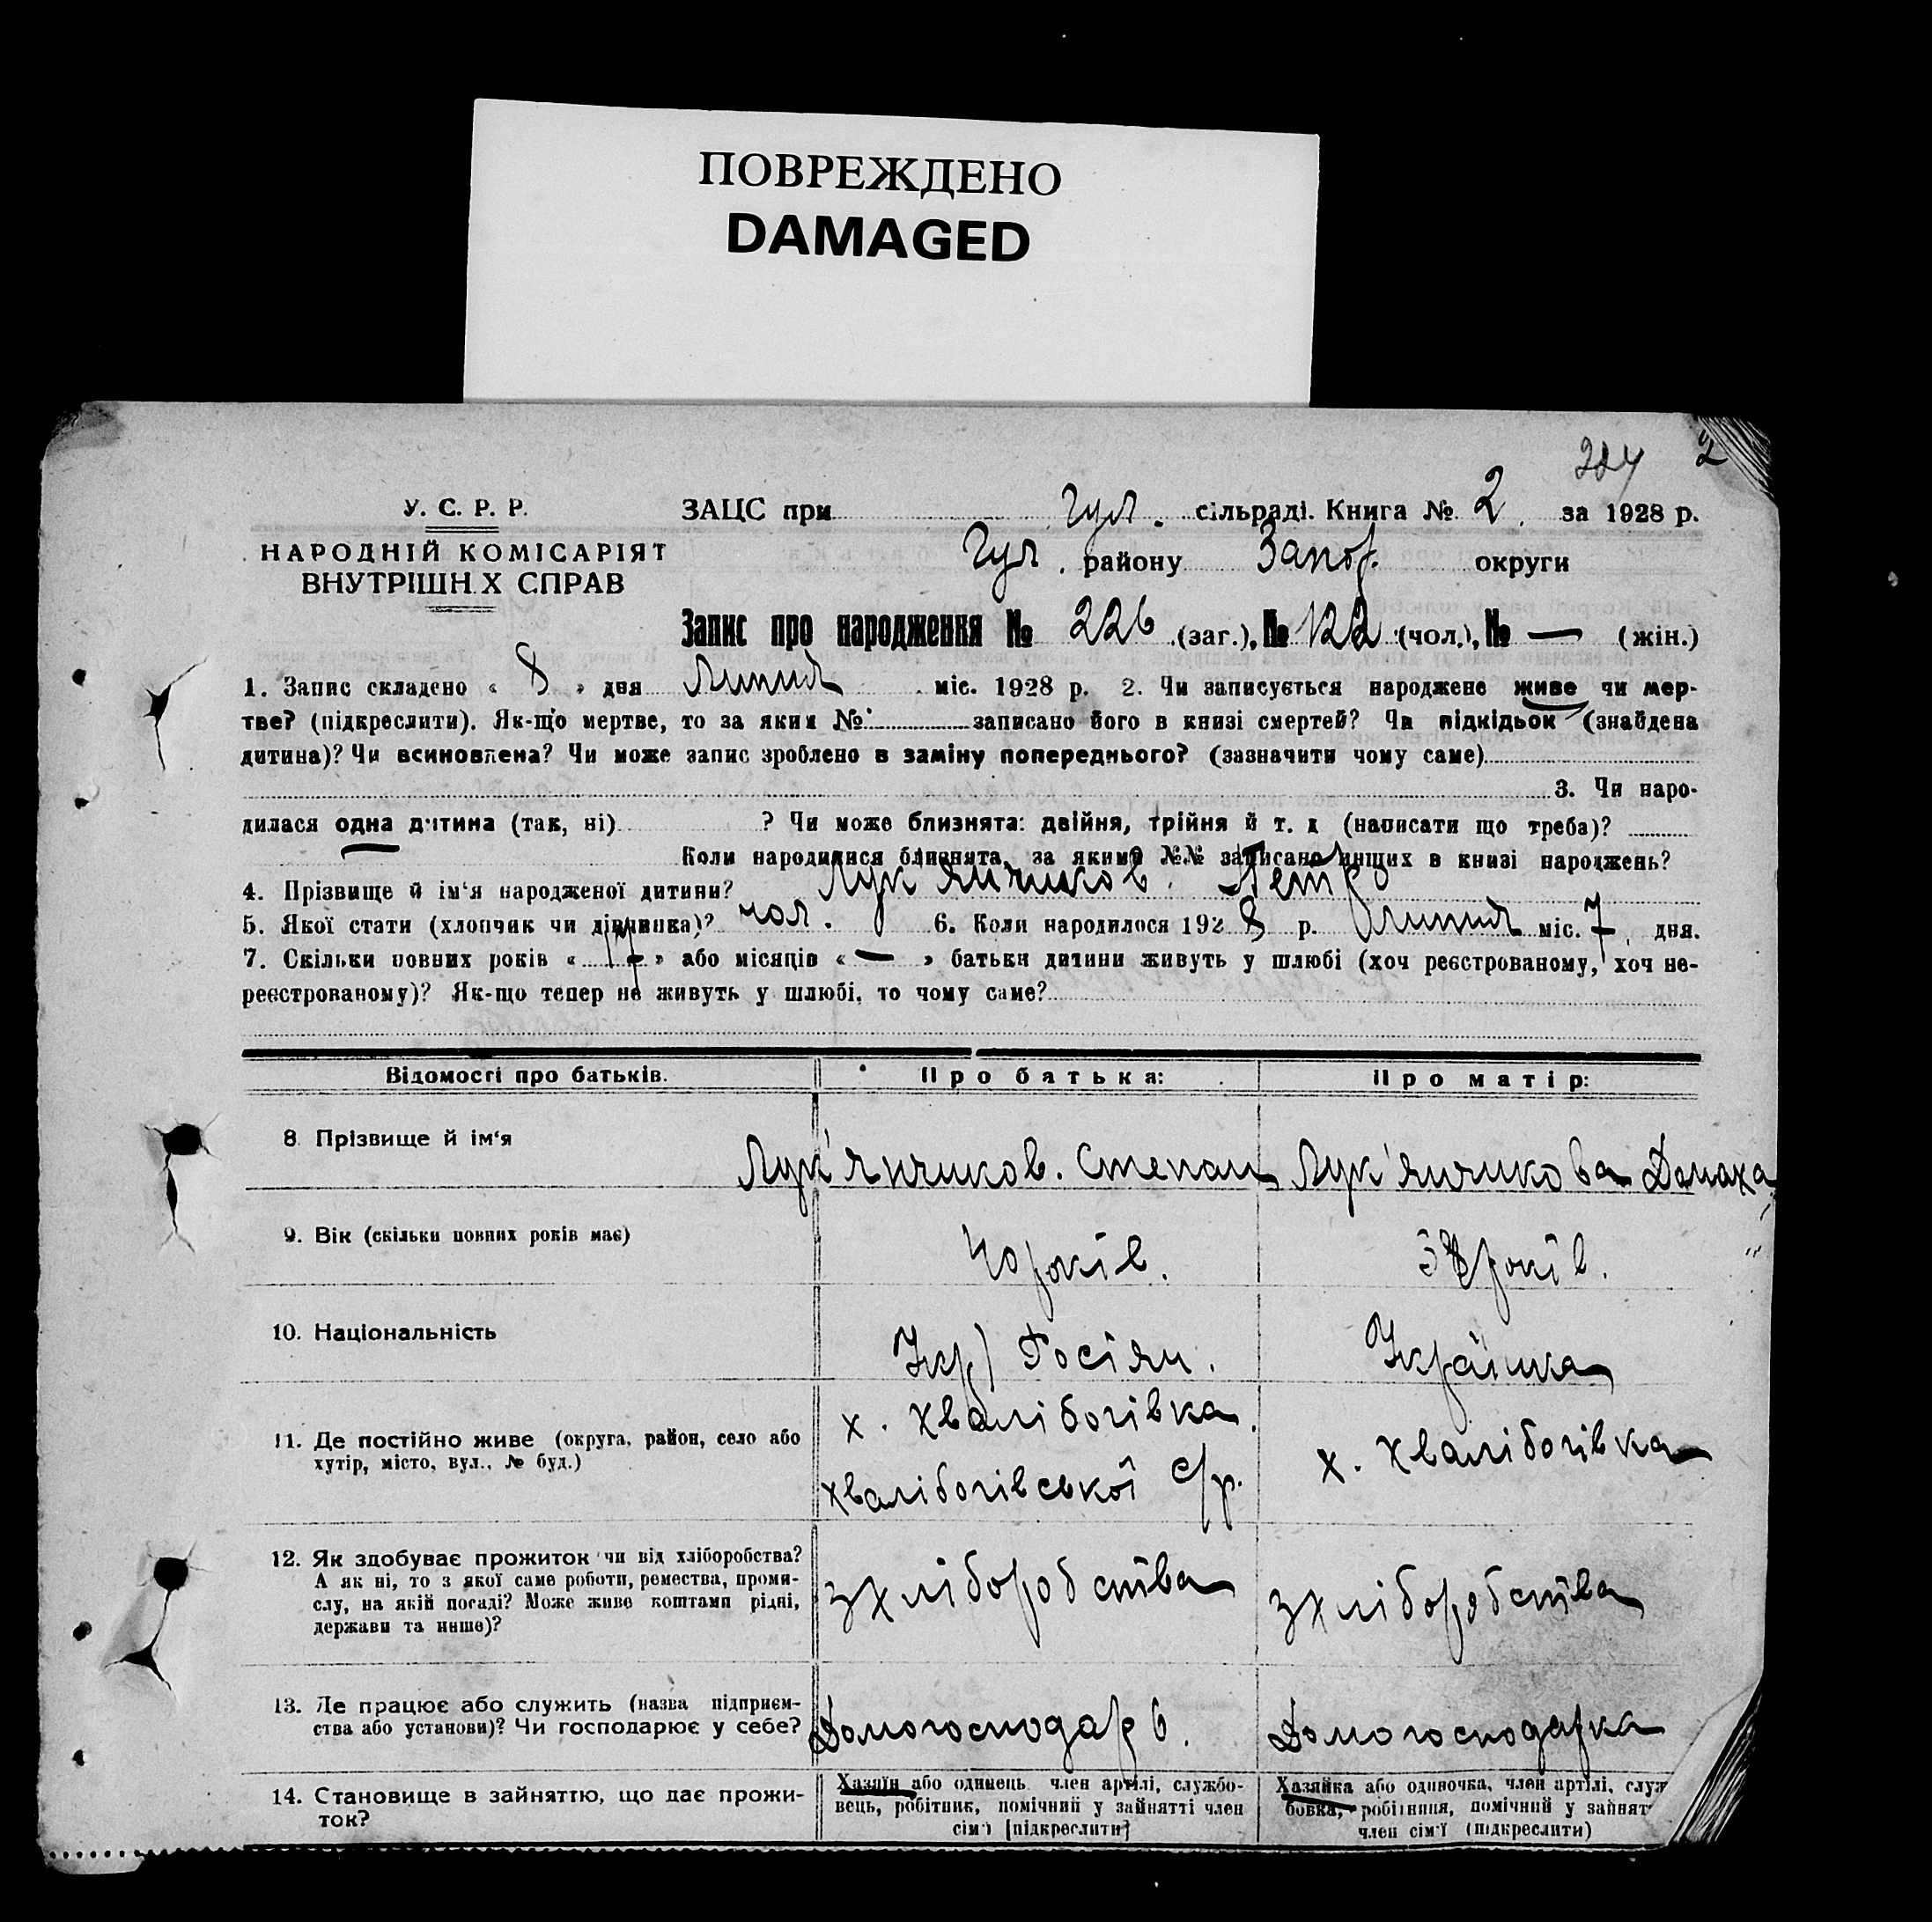 ПОВРЕЖДЕНО
DAMAGED
2
У. С. Р. Р.
НАРОДНІЙ КОМІСАРІЯТ
ВНУТРІШН.Х СПРАВ
ЗАЦС при Гул. сільраді. Книга № 2. за 1928 р.
Гул. району Запор. округи
Запис про народження № 226 (заг.), № 122 (чол.), № — (жін.)
1. Запис складено « 8 » дня липня міс. 1928 р. 2. Чи записується народжене живе чи мер-
тве? (підкреслити). Як-що мертве, то за яким № записано його в книзі смертей? Чи підкідьок (знайдена
дитина)? Чи всиновлена? Чи може запис зроблено в заміну попереднього? (зазначити чому саме)
3. Чи наро-
дилася одна дитина (так, ні) ? Чи може близнята: двійня, трійня й т. д (написати що треба)?
Коли народилися близнята, за якими №№ записано инших в книзі народжень?
4. Прізвище й ім'я народженої дитини? Лук'янчиков. Петр
5. Якої стати (хлопчик чи дівчинка)? чол. 6. Коли народилося 1928 р. липня міс. 7. дня.
7. Скільки повних років « 17 » або місяців « — » батьки дитини живуть у шлюбі (хоч реєстрованому, хоч не-
реєстрованому)? Як-що тепер не живуть у шлюбі, то чому саме?
Відомості про батьків. Про батька: Про матір:
8. Прізвище й ім'я Лук'янчиков. Степан Лук'янчикова Домаха
9. Вік (скільки повних років має) 40 років. років.
10. Національність Укр) Росіян. Українка
11. Де постійно живе (округа, район, село або
хутір, місто, вул., № буд.)
х. Хвалібогівка.
Хвалібогівської с/р.
х. Хвалібогівка
12. Як здобуває прожиток чи від хліборобства?
А як ні, то з якої саме роботи, ремества, проми-
слу, на якій посаді? Може живе коштами рідні,
держави та инше)?
з хліборобства
з хліборобства
13. Де працює або служить (назва підприєм-
ства або установи)? Чи господарює у себе?
Домогосподарь.
Домогосподарка
14. Становище в зайняттю, що дає прожи-
ток?
Хазяїн або одинець член артілі, службо-
вець, робітник, помічний у зайнятті член
сім'ї [підкреслити]
Хазяйка або одиночка, член артілі, служ
бовка, робітниця, помічний у зайнят
член сім'ї (підкреслити)